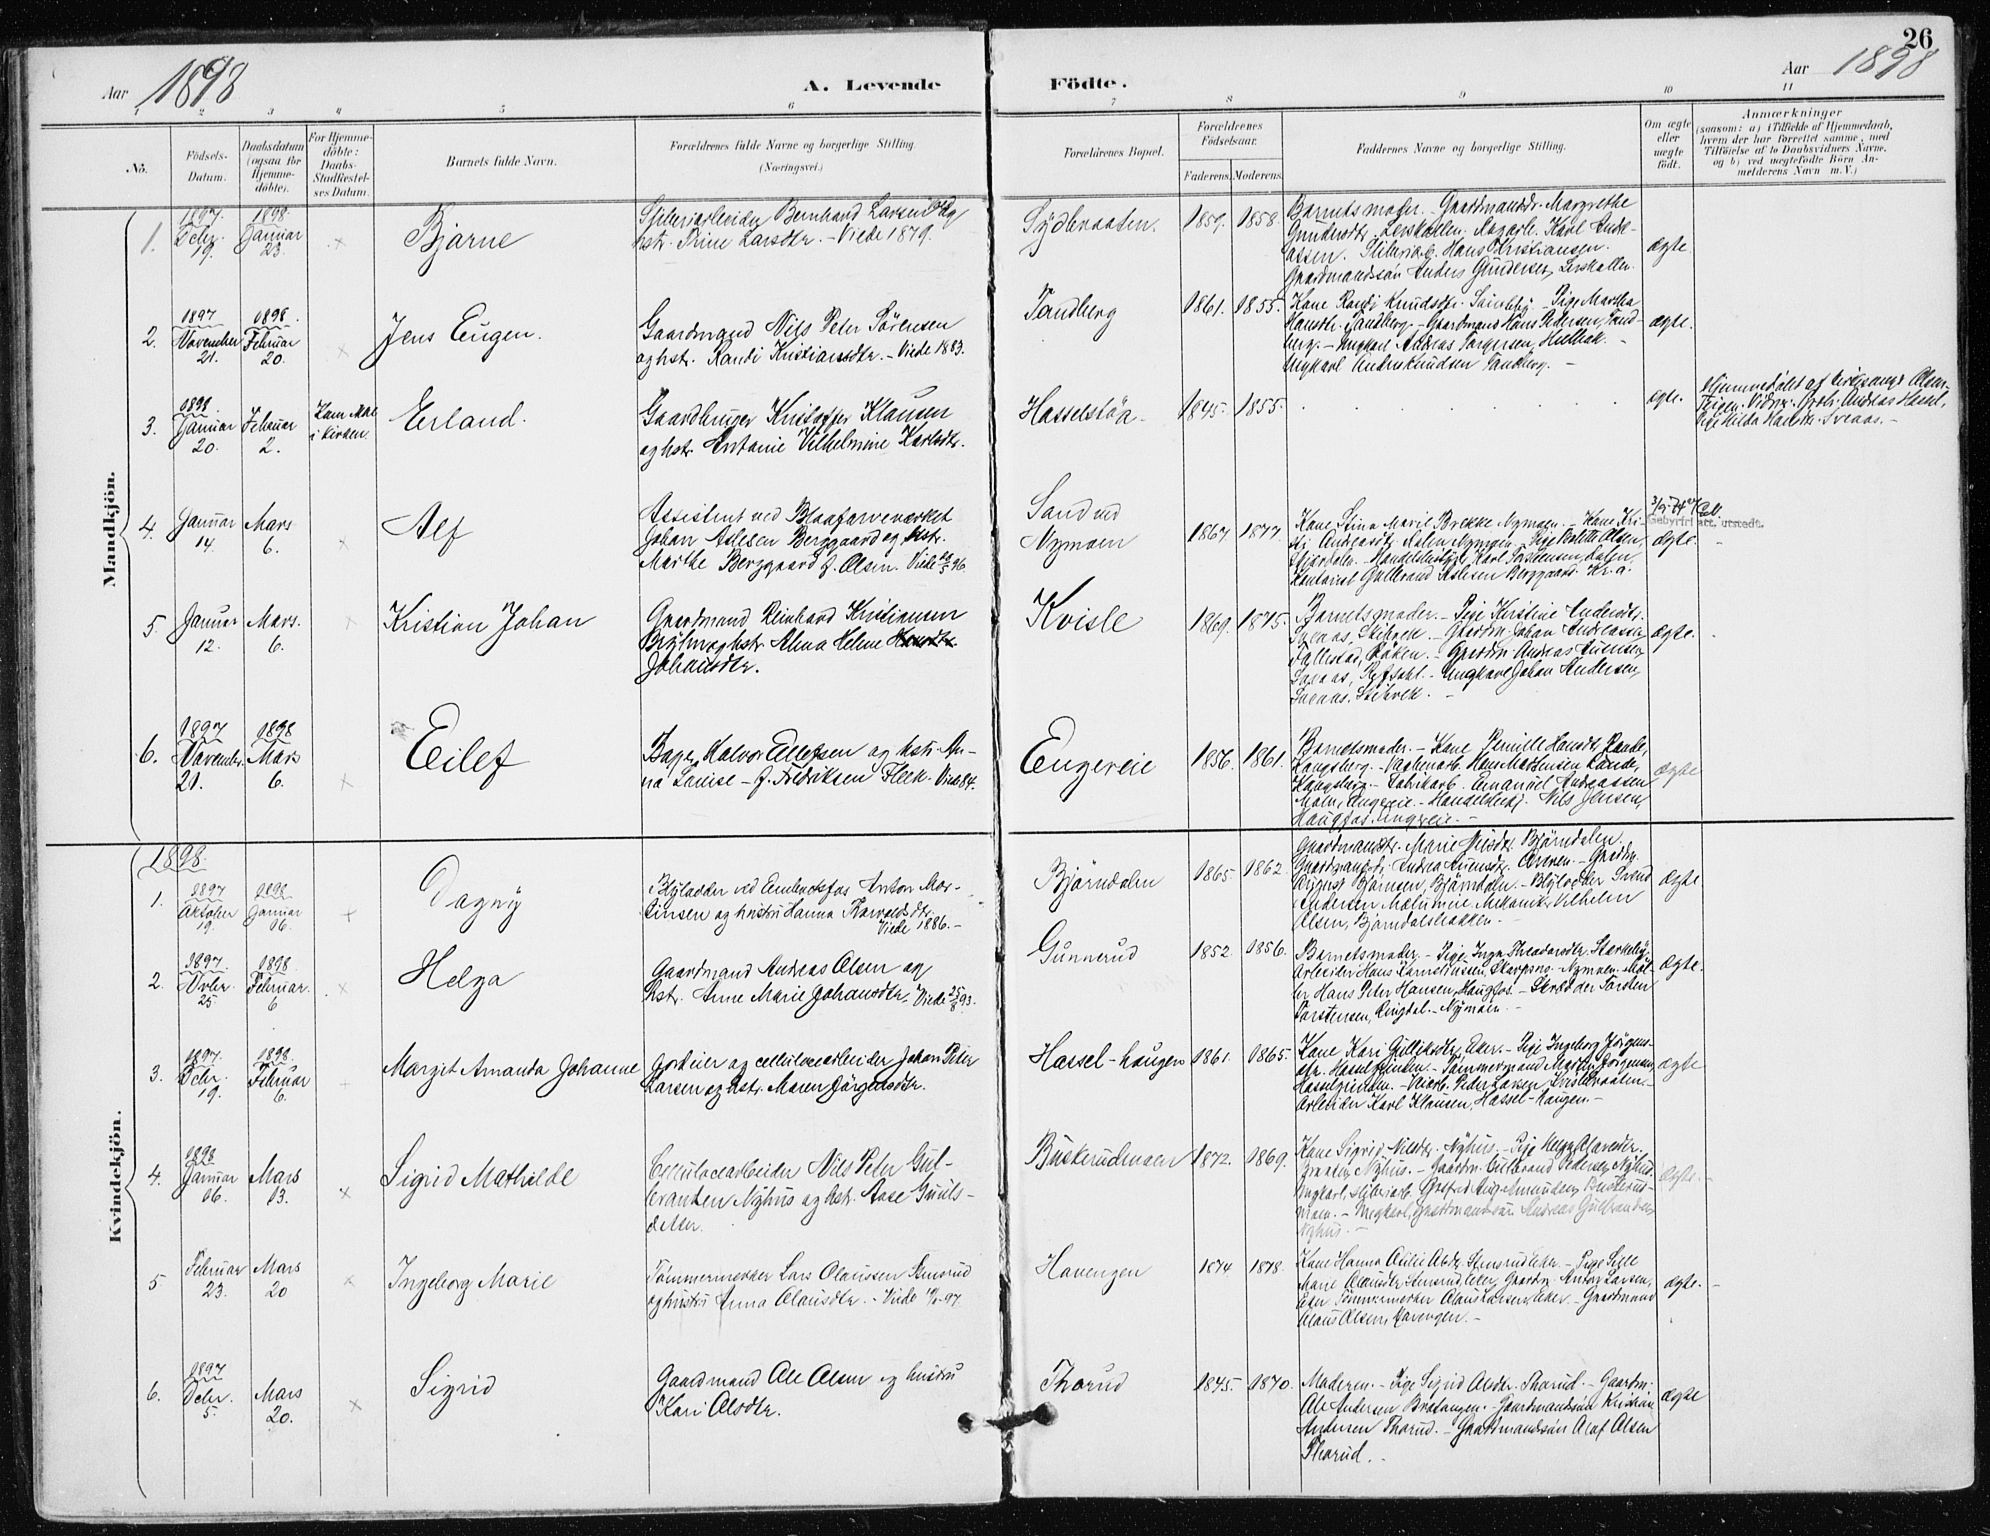 26
Aar 1898
A. Levende
Födte.
Aar 1898
1 2 3 4 5 6 7 8 9 10 11
No.
Födsels-
Datum.
Daabsdatum
(ogsaa for
Hjemme-
döbte).
For Hjemme-
döbte:
Daabs-
Stadfæstel-
ses Datum.
Barnets fulde Navn.
Forældrenes fulde Navne og borgerlige Stilling.
(Næringsvei.)
Forældrenes Bopæl.
Forældrenes
Födselsaar.
Faderens.
Moderens.
Faddernes Navne og borgerlige Stilling.
Om ægte
eller
uægte
født.
Anmærkninger
(saasom: a) i Tilfælde af Hjemmedaab,
hvem der har forrettet samme, med
Tilföielse af to Daabsvidners Navne,
og b) ved uegtefødte Börn An-
melderens Navn m. V.)
Mandkjön.
1.
1897.
Decbr.
19.
1898.
Januar
23.
Bjarne
Sliberiarbeider Bernhard Larsen og
hstr. Trine Larsdtr. - Viede 1879.
Sydbraaten.
1859. 1858.
Barnets moder. - Gaardmandsdtr. Margrethe
Gundersdtr. Lerskallen. Karl Andr-
assen. Hans Kristiansen.
Gaardmandssøn Anders Gundersen, Lerskallen.
ægte
2.
1897
November
21.
1898.
Februar
20.
Jens Eugen.
Gaardmand Nils Peter Sörensen
og hstr. Randi Kristiansdtr. - Viede 1883.
Tandberg
1861. 1855.
Kone Randi Knudsdtr. - Pige Martha
Hansdtr. Tandberg. - Gaardmand Hans Pedersen, Tand-
berg. - Ungkarl Andreas Torgersen,
Ungkarl Anders Knudsen Tandberg. -
ægte.
3.
1898
Januar
20.
Februar
2.
Kom ikke
i Kirken.
Erland.
Gaardbruger Kristoffer Klausen
og hstr. Antonie Vilhelmine Karlsdtr.
Hasselstöa
1845. 1855.
ægte.
Hjemmedøbt af Kirkesanger Olsen
Andreas Hassel,
Pige Hilda Svenas. -
4.
Januar
14.
Mars
6.
Alf
Assistent ved Blaafarveværket
Johan Aslesen Berggaard og hstr.
Marthe Berggaard f. Olsen. Viede 96.
Sand ved
Nymoen
1867. 1877.
Kone Stina Marie Brekke Nymoen. - Kone Kri-
sti Andreasdtr. Aalen Nymoen. - Pige Olsen,
Karl Torstensen, Aalen,
Kontorist Gulbrand Aslesen Berggaard. Kr.a.
Gebyrfri att. utstedt.
ægte.
5.
Januar
12.
Mars.
6.
Kristian Johan
Gaardmand Reinhard Kristiansen
og hstr. Alma Helene
Johansdtr.
Kvisle
1869. 1875.
Barnets moder. - Pige Kirstine Andersdtr.
Svenas, - Gaardm. Johan Andreassen
Fallestad, Röken. - Gaardm. Andreas
Svenas, - Ungkarl Johan Andersen,
Svenas.
ægte.
6.
1897
Novembr.
21.
1898
Mars
6.
Eilef
Bager Halvor Ellefsen og hstr. An-
na Louise - f. Fredriksen Fleck. Viede 84.
Engereie
1856. 1861.
Barnets moder. - Kone Pernille Hansdtr.
Kongsberg. - Hans Mathiesen
Kongsberg. - Fabrikarb. Emanuel Andreassen
Moen, Engereie. - Nils Jensen,
Haugfos, Engereie. -
ægte
Kvindekjön.
1898.
1.
1897
Oktober
19.
1898
Januar
16.
Dagny
ved Embretsfos Anton Mar-
tinsen og hustru Hanna
Viede 1886. -
Björndalen
1865 1862
Gaardmandsdtr. Marie Nilsdtr. Björndalen.
Gaardmandsdtr. Andrea
August Björnsen, Björndalen. - Svend
Andersen Mekaniker Vilhelm
Olsen, Björndalsbakken. -
ægte
2.
1897.
Nvbr.
25
1898.
Februar.
6
Helga
Gaardmand Andreas Olsen og
hstr. Anne Marie Johansdtr. Viede 25/8 93.
Gunnerud
1852. 1856.
Barnets moder. - Pige Inga Theodorsdtr.
Arbeider Hans Korneliussen, Skarpsno - Nymoen. Møl-
ler Hans Peter Hansen, Haugfos. - Skrædder Torsten
Torstensen, Ringdal. - Nymoen. -
ægte.
3.
1897.
Dcbr.
19.
1898.
Februar
6.
Margit Amanda Johanne
Gordeier og cellulosearbeider Johan Peter
Larsen og hstr. Maren Jörgensdtr.
Hassel-haugen
1861. 1865.
Kone Kari Gulliksdtr. Eker. - Pige Ingeborg Jörgens-
dtr. Hasselgienden. - Tømmermand Martin Jörgensen
Hasselgienden. - Peder Larsen
Arbeider Karl Klausen, Hassel-haugen. -
ægte
4.
1898
Januar
06.
Mars
13.
Sigrid Mathilde
Cellulosearbeider Nils Peter Gul-
brandsen Nyhus og hstr. Aase Guuls-
datter.
Buskerudmoen
1872. 1869.
Kone Sigrid Nilsdtr. Nyhus. - Pige Helga Olavesdtr.
Nyhus. - Gaardm. Gulbrand Pedersen Nyhus
Ungkarl, sliberiarb. Amundsen Buskerud-
moen. - Ungkarl, Gaardmandssøn Andreas Gulbrandsen
Nyhus. -
ægte. -
5
Februar
23.
Mars
20
Ingeborg Marie
Tömmermerker Lars Olaussen Amrud
og hustru Anna Olausdtr. - Viede 97.
Havengen
1874 1878.
Kone Hanna Eker. - Pige
Marie Olausdtr. Eker, Gaardm. Anton Larsen,
Eker Tömmermerker Olaus Larsen, Eker. - Gaardmand
Olaus Olsen, Havengen. -
ægte. -
6.
1897
Dcbr.
5.
Mars
20.
Sigrid
Gaardmand Ole Olsen og hustru
Kari Olsdtr.
Thorud
1845. 1870.
Moderen. - Pige Sigrid Olsdtr. Thorud. - Gaardm.
Ole Andersen Brotangen. - Gaardmandssön Kristian
Andersen Thorud. - Gaardmandssön Olaf Olsen
Thorud. -
ægte